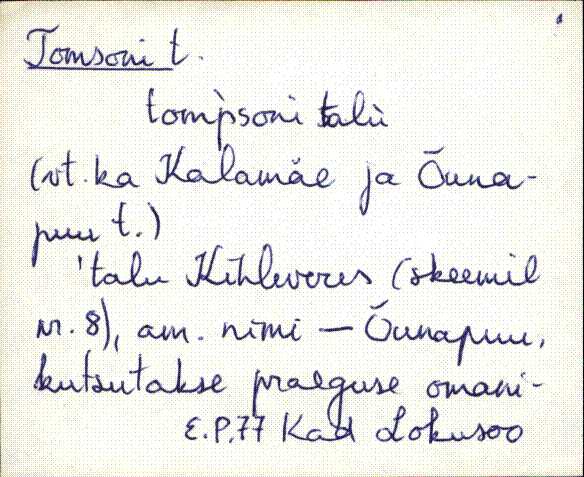 Tomsoni t.
tom̀psoni talù
(vt. ka Kalamäe ja Õuna-
puu t.)
'talu Kihleveres (skeemil
nr. 8), am. nimi — Õunapuu,
kutsutakse praeguse omani-
E.P.77 Kad Lokusoo